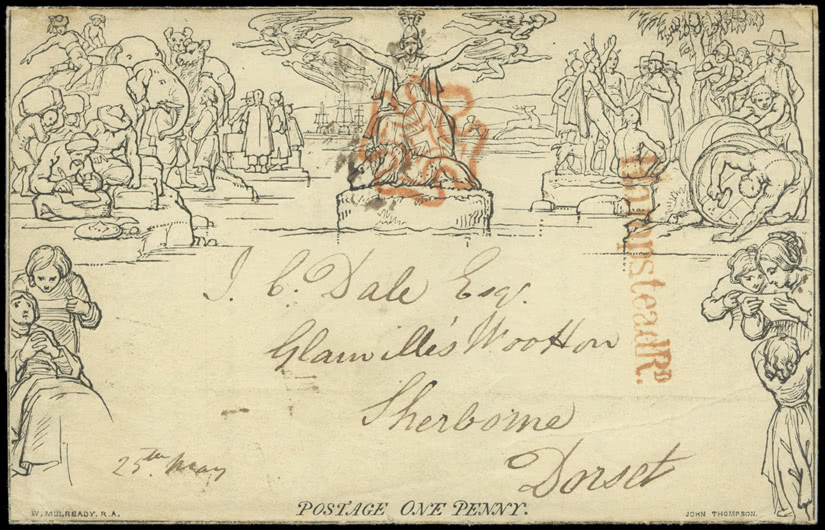 J. C. Dale Esq.
Glanville's Wootton
Sherborne
Dorset
25th May
HampsteadRD.
W. MULREADY. R.A.
POSTAGE ONE PENNY.
JOHN THOMPSON.